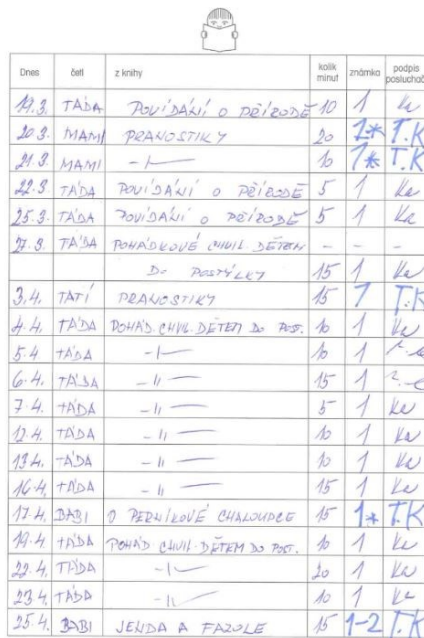 Dnes četl z knihy kolik minut známka podpis posluchače
19.3. TÁDA POVÍDÁNÍ O PŘÍRODĚ 10 1 Ka
20.3. MAMI PRANOSTIKY 20 1* T.K
21.3. MAMI -||- 10 1* T.K
22.3. TÁDA POVÍDÁNÍ O PŘÍRODĚ 5 1 Ka
25.3. TÁDA POVÍDÁNÍ O PŘÍRODĚ 5 1 Ka
27.3. TÁDA POHÁDKOVÉ CHVIL. DĚTEM - - -
DO POSTÝLKY 15 1 Ka
3.4. TATÍ PRANOSTIKY 15 1 T.K
4.4. TÁDA POHÁD. CHVIL. DĚTEM DO POST. 10 1 Ka
5.4 TÁDA -||- 10 1
6.4. TÁDA -||- 15 1
7.4. TÁDA -||- 5 1 Ka
12.4. TÁDA -||- 10 1 Ka
13.4. TÁDA -||- 10 1 Ka
16.4. TÁDA -||- 15 1 Ka
17.4. BABI O PERNÍKOVÉ CHALOUPCE 15 1* T.K
19.4 TÁDA POHÁD CHVIL. DĚTEM DO POST. 10 1 Ka
22.4. TÁDA -||- 20 1 Ka
23.4 TÁDA -||- 10 1 Ka
25.4. BABI JENDA A FAZOLE 15 1-2 T.K